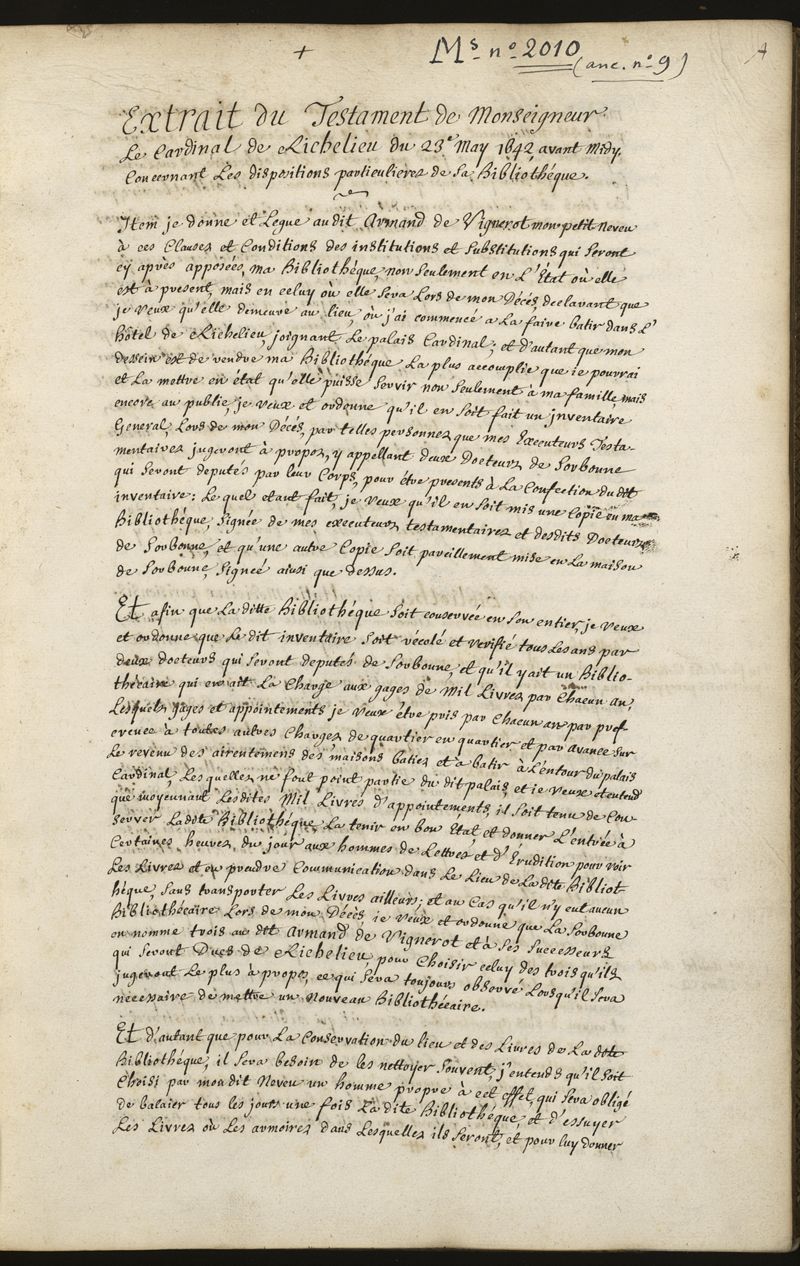 +
Ms. n° 2010
(anc. n° 9)
Extrait du Testament de Monseigneur
Le Cardinal de Richelieu du 23e May 1642 avant Midy,
Concernant Les dispositions particulieres de Sa Bibliothéque.
Item je donne et Legue audit Armand de Vignerot mon petit Neveu
à ces Clauses et Conditions des institutions et Substitutions qui Seront
cy après apposées, ma Bibliothéque, non Seulement en L'État où elle
est à present, mais en celuy où elle Sera Lors de mon Décés, declarant que
je Veux qu'elle demeure au lieu, où j'ai commencé a La faire batir dans L'
hôtel de Richelieu, joignant Le palais Cardinal; et d'autant que mon
dessein est de rendre ma Bibliothéque La plus accomplie que ie pourrai
et La mettre en état qu'elle puisse Servir non Seulement à ma famille mais
encore au public, je veux et ordonne qu'il en Soit fait un inventaire
General, Lors de mon Décés, par telles personnes que mes Executeurs Testa-
mentaires jugeront à propos, y appellant deux Docteurs de Sorbonne
qui Seront deputés par leur Corps, pour étre presents à La Confection du dit
inventaire: Le quel etant fait, je Veux qu'il en Soit mis une Copie en ma
Bibliothéque, Signée de mes executeurs testamentaires et desdits Docteurs
de Sorbonne, et qu'une autre Copie Soit pareillement mise en La maison
de Sorbonne, Signeé ainsi que dessus.
Et afin que La ditte Bibliothéque Soit conservée en Son entier, je Veux
et ordonne que Le dit inventaire Soit récolé et Verifié tous Les ans par
deux docteurs qui Seront deputés de Sorbonne, et qu'il y ait un Biblio-
thécaire qui en ait La Charge aux gages de Mil Livres par Chacun an,
Lesquels gages et appointements je Veux étre pris par Chacun an par pref-
erence à toutes autres Charges de quartier en quartier et par avance Sur
Le revenu des airentemens des maisons baties et à batir à L'entour du palais
Cardinal, Lesquelles ne font point partie du dit palais, et ie Veux et entend
que moyennant Lesdites Mil Livres d'appointements, il Soit tenu de Con-
server Ladite Bibliothéque, La tenir en bon État et donner L'entrée à
Certaines heures du jour aux hommes de Lettres et d'Érudition pour voir
Les Livres et en prendre Communication dans Le Lieu de La dite Bibliot
héque, Sans transporter Les Livres ailleurs; et au Cas qu'il n'y eut aucun
Bibliothécaire Lors de mon Décès, ie Veux et ordonne que La Sorbonne
en nomme trois au dit Armand de Vignerot et à Ses Successeurs
qui Seront Ducs de Richelieu, pour Choisir celuy des trois qu'ils
jugeront Le plus à propos, ce qui Sera toujours observé Lorsqu'il Sera
nécessaire de mettre un Nouveau Bibliothécaire.
Et d'autant que pour La Conservation du lieu et des Livres de La dite
Bibliothéque, il Sera besoin de les nettoyer Souvent, j'entends qu'il Soit
Choisi par mondit Neveu un homme propre à cet effet, qui Sera obligé
de balaier tous les jours une fois La dite Bibliothéque, et d'essuyer
Les Livres où Les armoires dans Lesquelles ils Seront, et pour luy donner